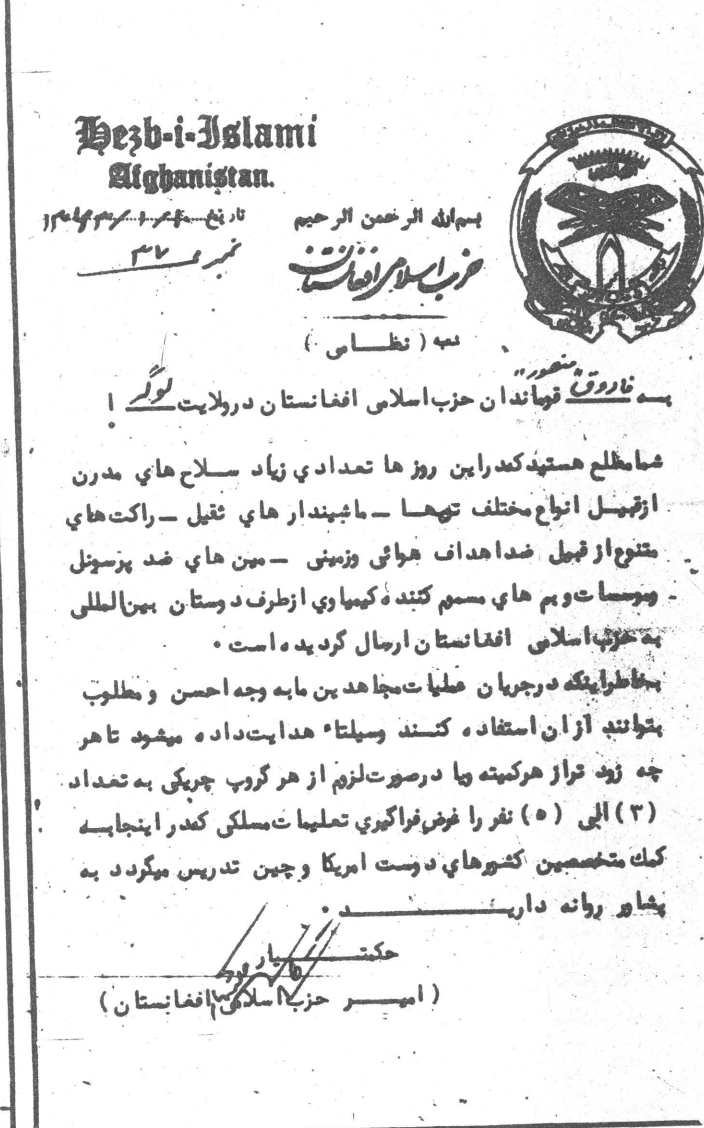 Hezb-i-Islami
Afghanistan.
تاریخ
نمبر ۳۷
بسم الله الرحمن الرحیم
حزب اسلامی افغانستان
( نظـــامی )
بـــه فاروق "منصور" قوماندان حزب اسلامی افغانستان درولایت لوگر !
شما مطلع هستید که در این روز ها تعدادي زیاد ســلاح هاي مدرن
از قبیــل انواع مختلف توپهــا ــ ماشیندار هاي ثقیل ــ راکت هاي
متنوع از قبیل ضد اهداف هوائی وزمینی ــ مین هاي ضد پرسونل
و بم هاي مسموم کننده کیمیاوي از طرف دوستان بین المللی
به حزب اسلامی افغانستان ارسال گردیده است .
بخاطر اینکه در جریان عملیات مجاهدین ما به وجه احسن و مطلوب
بتوانند از ان استفاده کننــد وسیلتاء هدایت داده میشود تا هر
چه زود تر از هر کمیته ویا در صورت لزوم از هر گروپ چریکی به تعداد
(۳) الی (۵) نفر را غرض فراگیري تعلیمات مسلکی که در اینجا بــه
کمك متخصصین کشورهاي دوست امریکا و چین تدریس میگردد به
پشاور روانه داریـــــــــــد .
حکمتـــــیار
( امیــــر حزب اسلامی افغانستان )